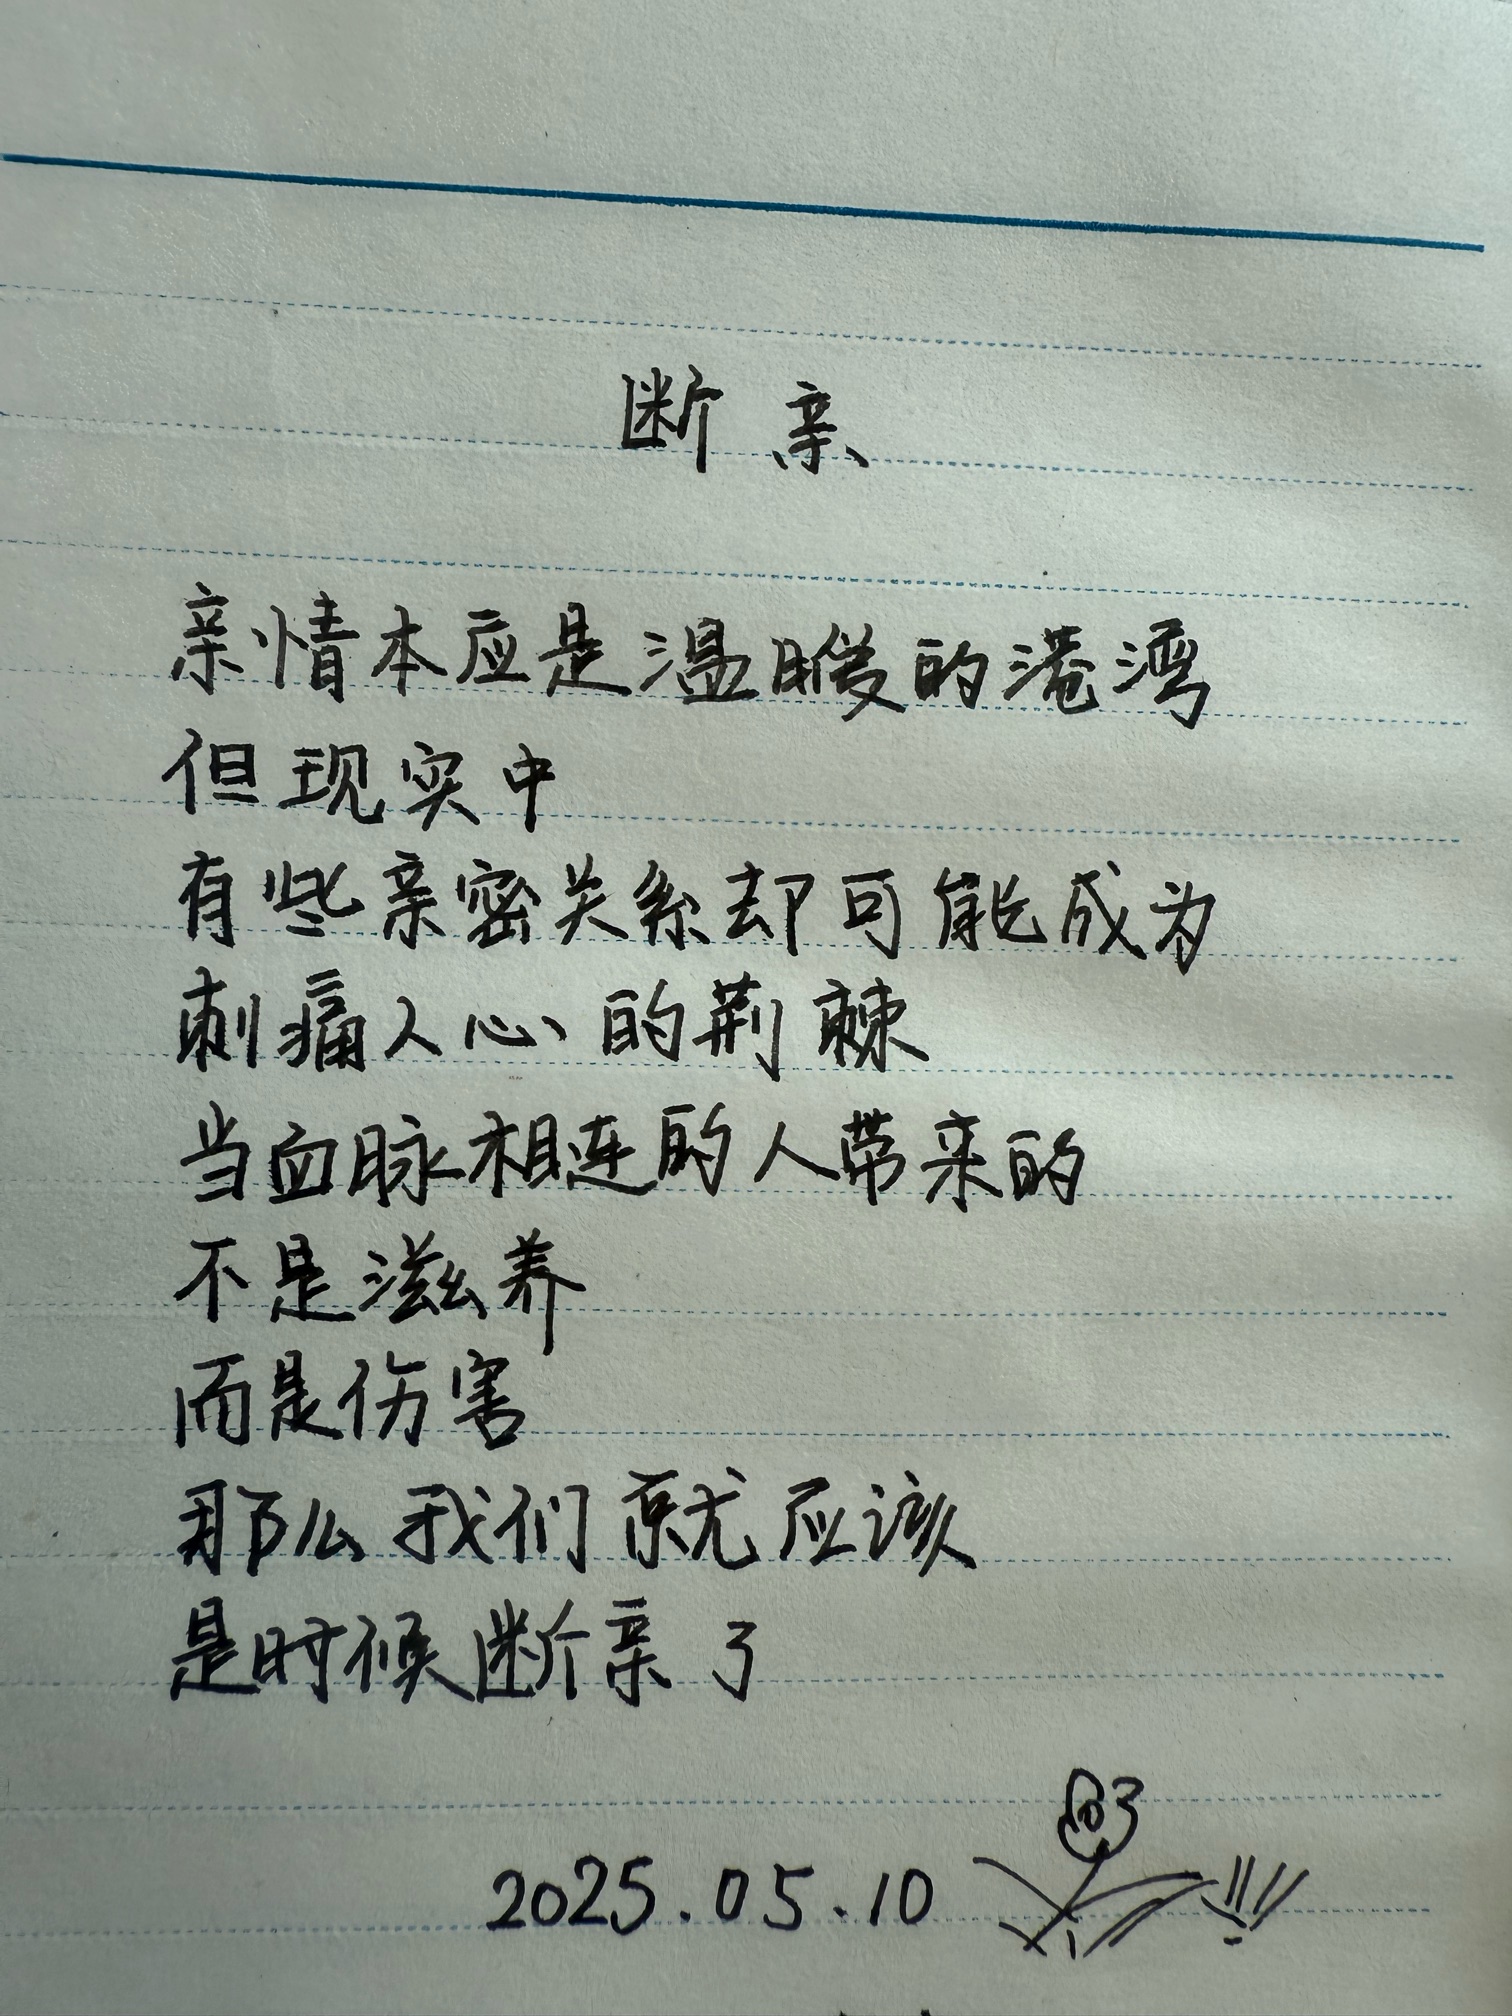 断亲
亲情本应是温暖的港湾
但现实中
有些亲密关系却可能成为
刺痛人心的荆棘
当血脉相连的人带来的
不是滋养
而是伤害
那么我们就应该
是时候断亲了
2025.05.10